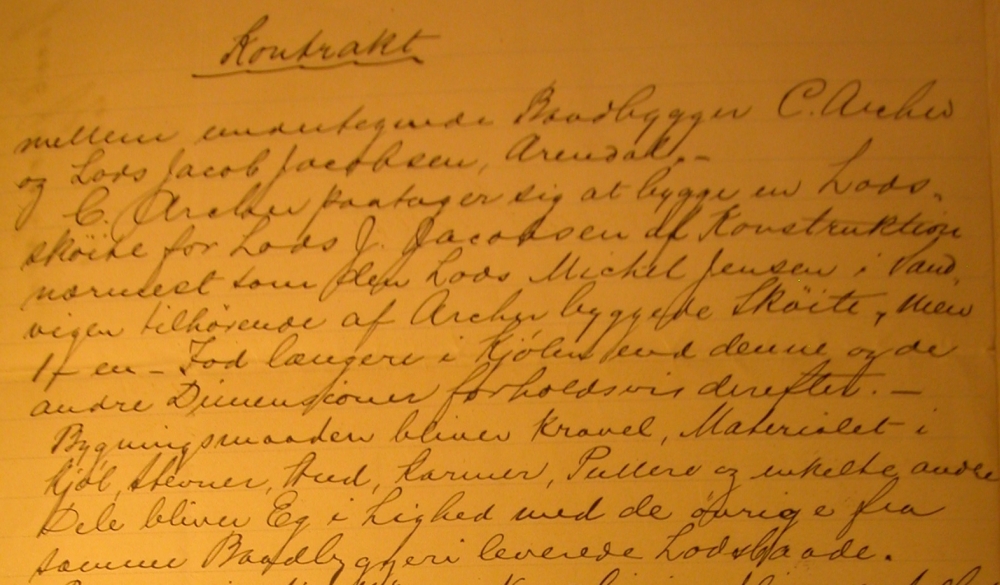 Kontrakt
mellem undertegnede Baadbygger C. Archer
og Lods Jacob Jacobsen, Arendal. –
C. Archer paatager sig at bygge en Lods-
skøite for Lods J. Jacobsen af Konstruktion
nærmest som den Lods Michel Jensen i Sand,
vigen tilhørende af Archer byggede Skøite, men
1 – en – Fod længere i Kjølen end denne og de
andre Dimensioner forholdsvis derefter. –
Bygningsmaaden bliver Kravel, Materialet i
Kjøl, Stevner, Hud, Karmer, Pullere og enkelte andre
Dele bliver Eg i Lighed med de øvrige fra
samme Baadbyggeri leverede Lodsbaade.